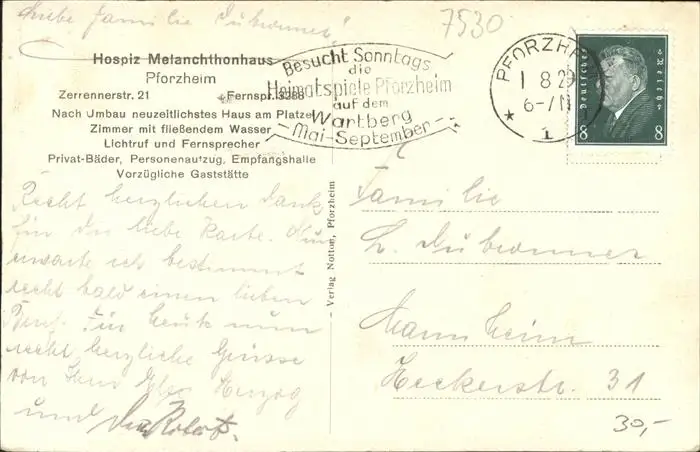 Liebe Familie Dubronner!
7530
Hospiz Melanchthonhaus
Pforzheim
Zerrennerstr. 21 Fernspr. 3288
Nach Umbau neuzeitlichstes Haus am Platze
Zimmer mit fließendem Wasser
Lichtruf und Fernsprecher
Privat-Bäder, Personenaufzug, Empfangshalle
Vorzügliche Gaststätte
Besucht Sonntags
die
Heimatspiele Pforzheim
auf dem
Wartberg
- Mai-September -
PFORZHEIM
1 8 29
6-7 N
* 1
Deutsches Reich
8 8
Recht herzlichen Dank
für die liebe Karte. Nun
erwarte ich bestimmt
recht bald einen lieben
Brief. Für heute nun
recht herzliche Grüsse
von Herzog
und
- Verlag Notton, Pforzheim
Familie
L. Dubronner
Mannheim
Heckerstr. 31
30,-